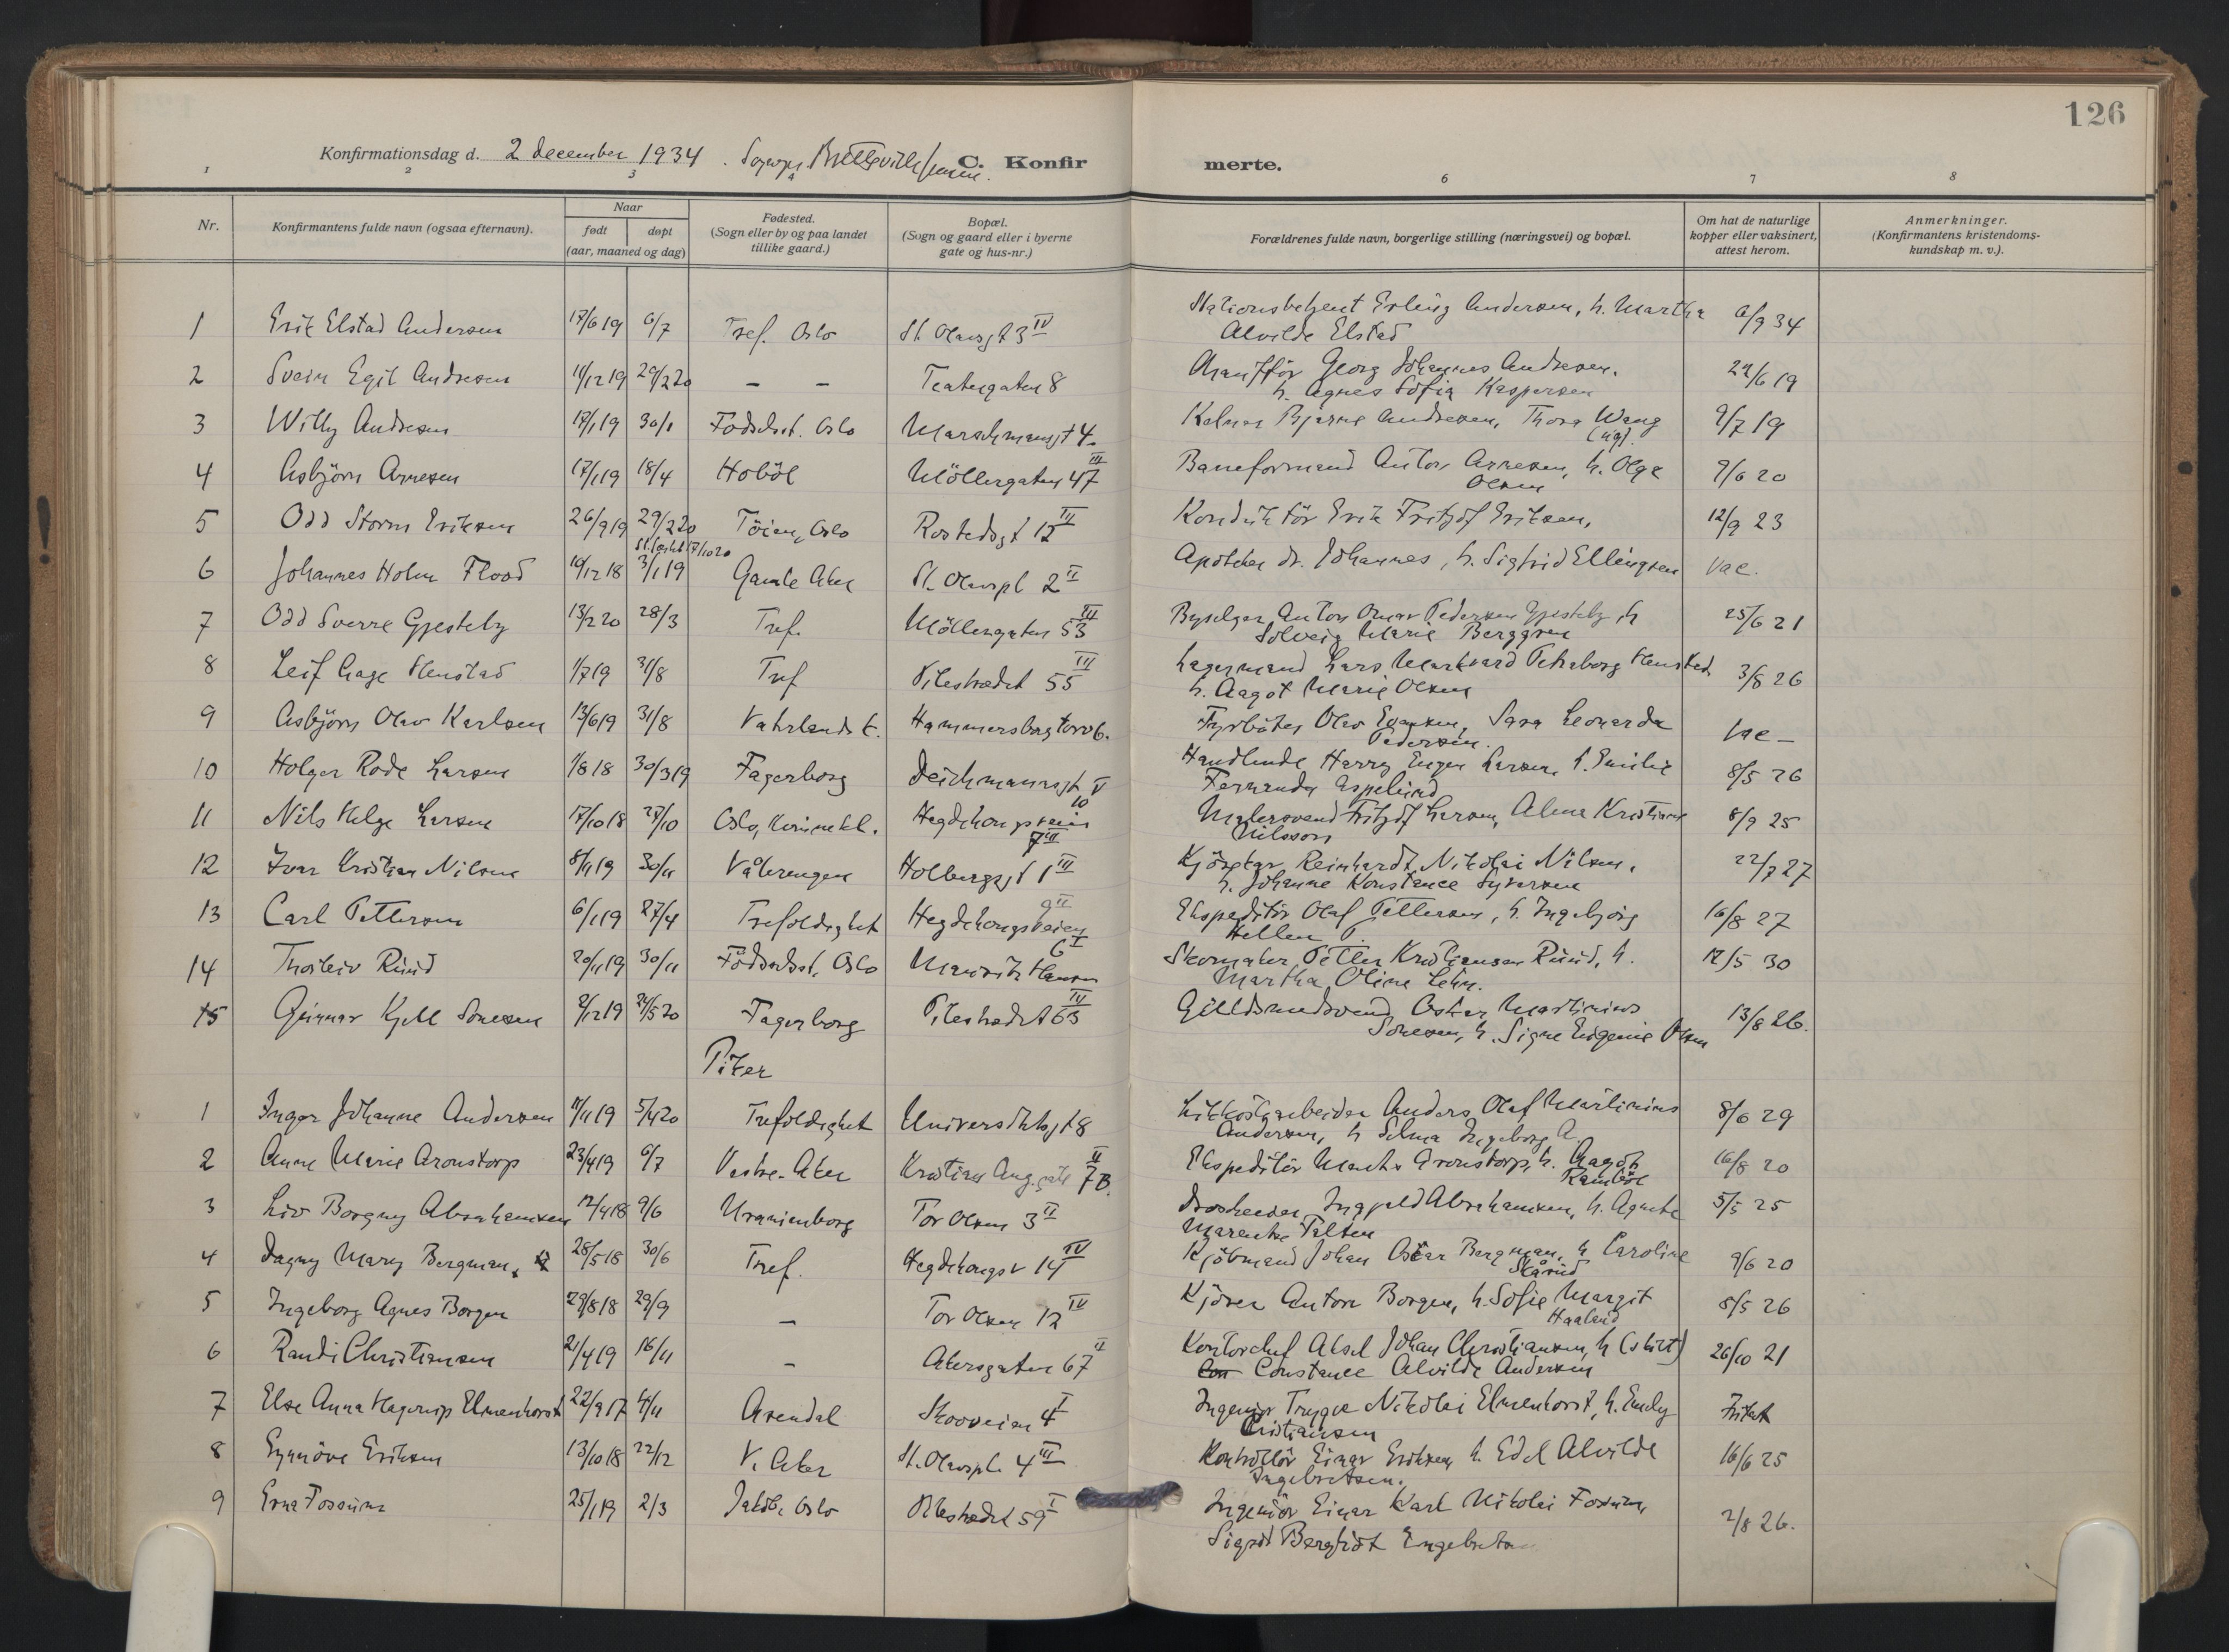 126
Konfirmationsdag d. 2 december 1934. C. Konfirmerte.
1 2 3 4 6 7 8
Nr. Konfirmantens fulde navn (ogsaa efternavn). Naar født døpt (aar, maaned og dag) Fødested. (Sogn eller by og paa landet tillike gaard.) Bopæl. (Sogn og gaard eller i byerne gate og hus-nr.) Forældrenes fulde navn, borgerlige stilling (næringsvei) og bopæl. Om hat de naturlige kopper eller vaksinert, attest herom. Anmerkninger. (Konfirmantens kristendomskundskap m. v.).
1 Erik Elstad Andersen 17/6 19 6/7 Tref. Oslo St. Olavsgt 3 IV Erling Andersen, h. Martha 6/9 34
Alvilde Elstad
2 Svein Egil Andresen 11/12 19 29/2 20 – – Teatergaten 8 Georg Johannes Andresen. 24/6 19
h. Agnes Sofia Kaspersen
3 Willy Andresen 17/1 19 30/1 Födselsst. Oslo 4 Kelner Bjarne Andresen, Thora Wang 9/7 19
(ug).
4 Asbjörn Arnesen 17/1 19 18/4 Hoböl Möllergaten 47 III Baneformand Anton Arnesen, h. Olga 9/6 20
Olsen
5 Odd Storm Eriksen 26/9 19 29/2 20 Töien, Oslo Rostedsgt 12 III Konduktör Erik Fritjof Eriksen, 12/9 23
17/10 20
6 Johannes Holm Flood 10/12 18 3/1 19 Gamle Aker St. Olavspl 2 II Apoteker dr. Johannes, h. Sigfrid Ellingsen Vac.
7 Odd Sverre Gjesteby 13/2 20 28/3 Tref. Möllergaten 53 III Anton Omar Pedersen Gjesteby h 25/6 21
Solveig Marie Berggren
8 Leif Aage Henstad 1/7 19 31/8 Tref Pilestrædet 55 III Lagermand Lars Henstad 3/8 26
h. Aagot Marie Olsen
9 Asbjörn Olav Karlsen 13/6 19 31/8 Vaterlands k. Hammersborg torv 6. Fyrböter Olav Sara Leonarda Vac –
Pedersen.
10 Holger Rode Larsen 1/8 18 30/3 19 Fagerborg Deichmannsgt V Handlende Harry Larsen h. Emilie 8/5 26
10 Fernanda Aspelund
11 Nils Helge Larsen 17/10 18 27/10 Oslo, Hegdehaugsveien Malersvend Fritjof Larsen, Alma Kristiane 8/9 25
7 III Nilsson
12 Ivar Kristian Nilsen 8/11 19 30/11 Vålerengen Holbergsgt 1 III Reinhardt Nikolai Nilsen, 22/7 27
h. Johanne Konstance Syversen
13 Carl Pettersen 6/1 19 27/4 Trefoldighet Hegdehaugsveien 9 II Ekspeditör Olaf Pettersen, h. Ingebjörg 16/8 27
Hellen P.
14 Thorleiv Ruud 20/11 19 30/11 Födselsst. Oslo Mauritz Hansen 6 I Skomaker Petter Kristiansen Ruud, h. 12/5 30
Martha Oline Lehn.
15 Gunnar Kjell Sörensen 2/12 19 24/5 20 Fagerborg Pilestrædet 63 III Gulldsmedsvend Oskar Martinius 13/8 26.
Sörensen, h. Signe Eugenie Olsen
Piker
1 Inger Johanne Andersen 11/11 19 5/4 20 Trefoldighet Universitetsgt 8 Anders Olaf Martinius 8/6 29
Andersen, h Selma Ingeborg A.
2 Anne Marie Aronstorp 23/4 19 6/7 Vestre Aker Kristian Aug. gate 7 B. II Ekspeditör Aronstorp, h. Aagot 16/8 20
3 Liv Borgny Abrahamsen 12/4 18 9/6 Uranienborg Tor Olsen 3 II Ingjald Abrahamsen, h. Agnete 5/5 25
Marenke Falten
4 Dagny Mary Bergman, 28/5 18 30/6 Tref. Hegdehaugsv 14 IV Kjöbmand Johan Oskar Bergman, h Caroline 9/6 20
Skårud
5 Ingeborg Agnes Borgen 29/8 18 29/9 – Tor Olsen 12 IV Kjörer Anton Borgen, h. Sofie Margit 8/5 26
Haaland
6 Randi Christiansen 21/4 19 16/11 – Akersgaten 67 II Kontorchef Aksel Johan Christiansen, h (skilt) 26/10 21
Constance Alvilde Andersen
7 Else Anna Hagerup Elmenhorst 22/9 17 4/11 Arendal Skovveien 4 I Ingeniör Trygve Nikolai Elmenhorst, h. Emely fritat
Kristiansen
8 Synnöve Eriksen 13/10 18 22/12 V. Aker St. Olavspl. 4 III Kontrollör Einar Eriksen, h. Edel Alvilde 16/6 25
Ingebretsen.
9 Erna Fossum 25/1 19 2/3 Jakob, Oslo Pilestrædet 59 I Ingeniör Einar Karl Nikolai Fossum, 2/8 26.
Sigrid Bergliot Engebretsen